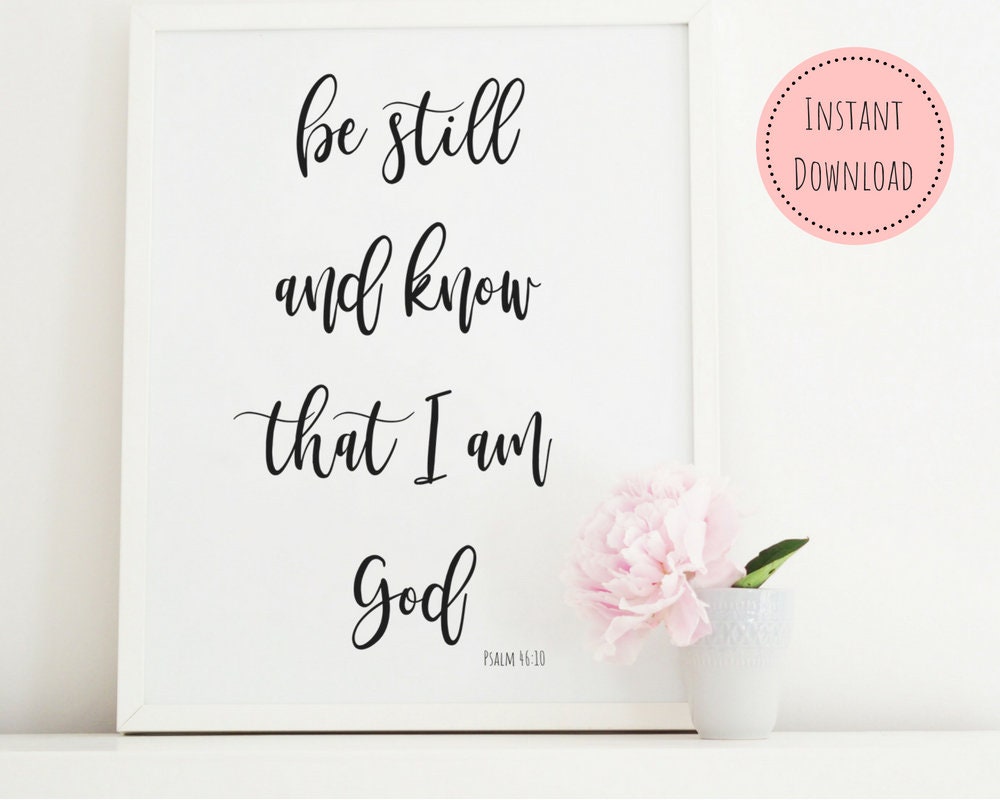 be still
and know
that I am
God
Psalm 46:10
Instant
Download